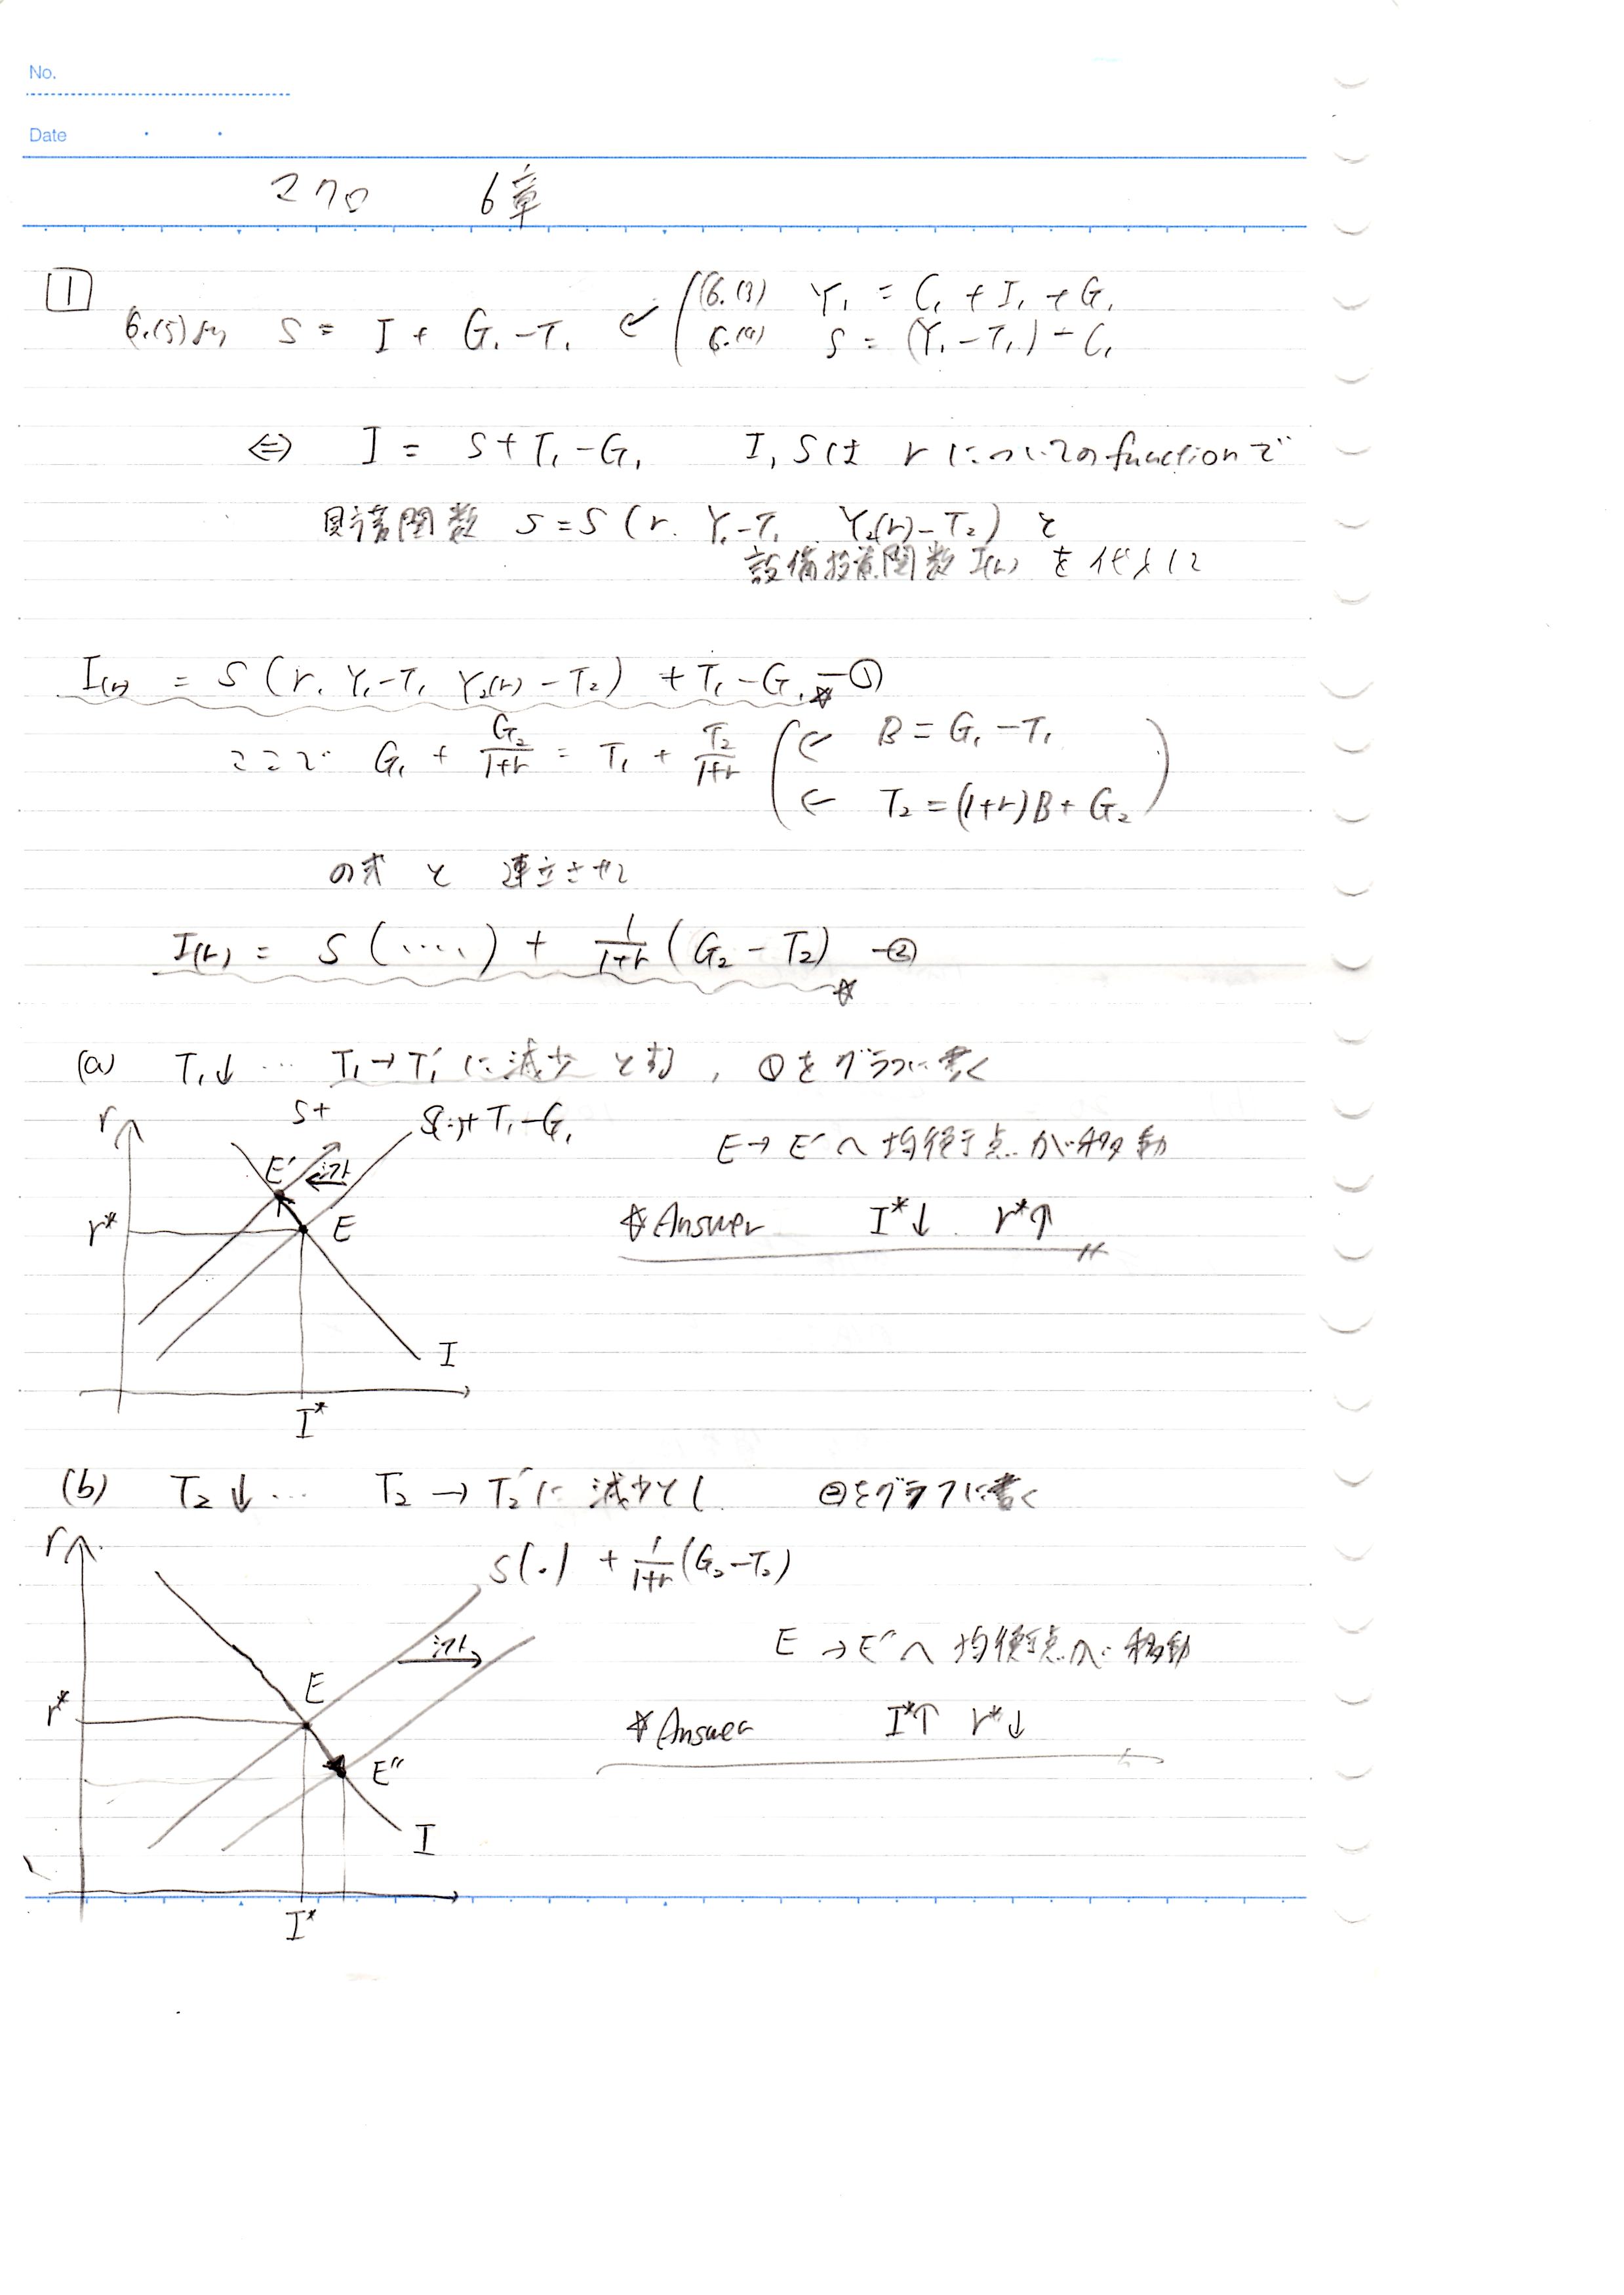 No.
Date
マクロ 6章
1
6.15)より S = I + G₁ - T₁ ← (6.13) Y₁ = C₁ + I₁ + G₁
6.14) S = (Y₁ - T₁) - C₁
⇔ I = S + T₁ - G₁ I, Sは rについての functionで
貯蓄関数 S = S (r. Y₁-T₁. Y₂(r)-T₂) と
設備投資関数 I(r) を代入して
I(r) = S (r. Y₁-T₁ Y₂(r)-T₂) + T₁ - G₁ ☆ -①
ここで G₁ + G₂/1+r = T₁ + T₂/1+r (← B = G₁ - T₁
← T₂ = (1+r)B + G₂)
の式 と 連立させて
I(r) = S (....) + 1/1+r (G₂ - T₂) -②
☆
(a) T₁↓ … T₁→T₁' に減少 とする, ①をグラフに書く
r
S+
S(・)+T₁-G₁
E'
シフト
E→E'へ均衡点が移動
r*
E
☆Answer I*↓ r*↑
I
I*
(b) T₂↓… T₂→T₂'に減少とし ②をグラフに書く
r
S(・) + 1/1+r (G₂-T₂)
シフト
E→E''へ均衡点が移動
E
r*
☆Answer I*↑ r*↓
E''
I
I*